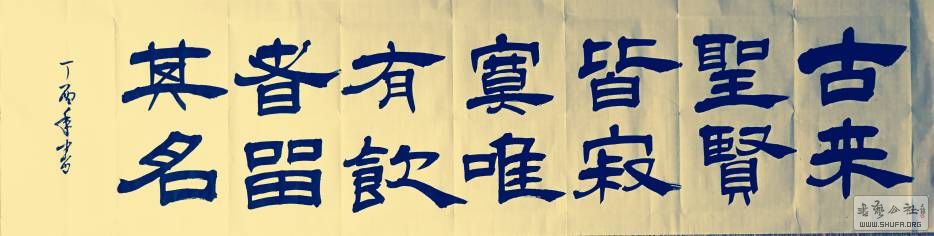 古来
聖賢
皆寂
寞唯
有飲
者留
其名
丁酉年书
书艺公社
WWW.SHUFA.ORG